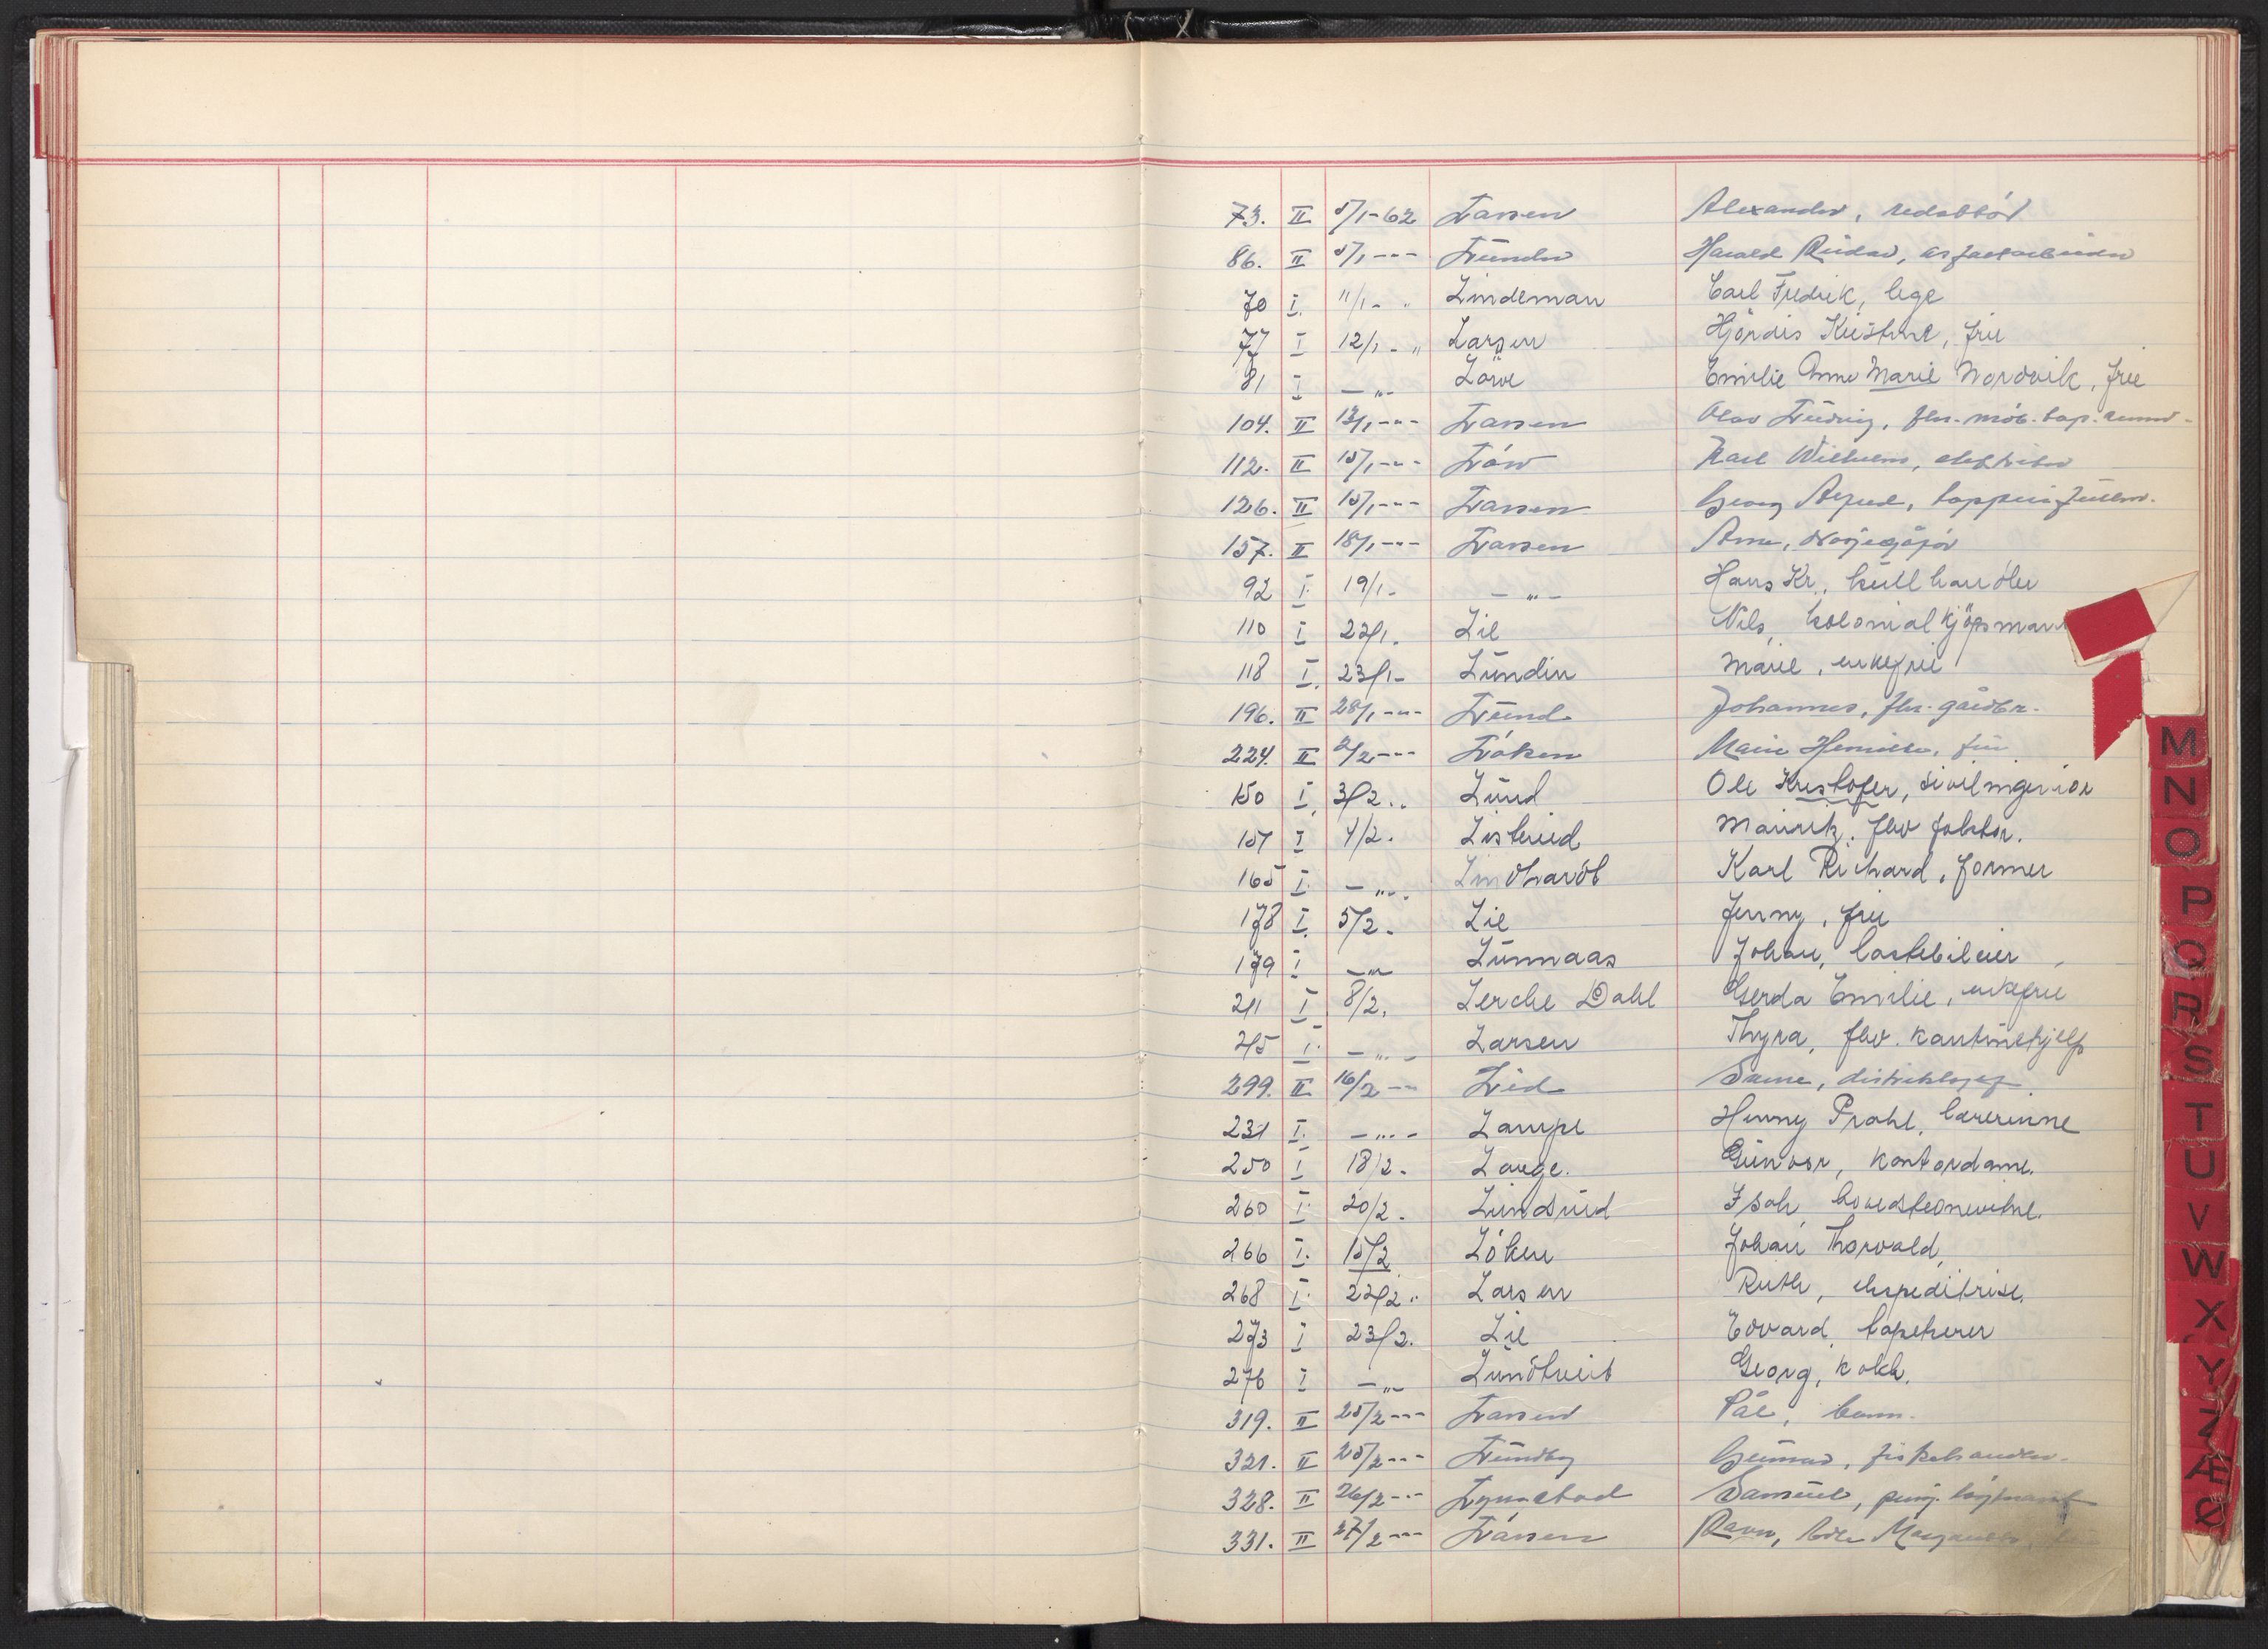 73. II 5/1-62 Larsen Alexander, redaktør
86. II 5/1 -"- Lunder Harald Reidar,
70 I. 11/1 - " Lindeman Carl Fredrik, lege
77 I 12/1 - " Larsen Hjørdis Kristine, fru
81 I - " - Löwe Emilie Anna Marie Nordvik, frue
104. II 13/1 -"- Larsen Olav Ludvig,
112. II 15/1 -"- Löw Karl Wilhelm, elektriker
126. II 15/1 -"- Larsen Georg
157. II 18/1 -"- Larsen Arne,
92 I. 19/1 - - " - Hans Kr., kullhandler
110 I 22/1. Lie Nils, kolonialkjöpsmann
118 I. 23/1 - Lundin Marie, enkefru
196. II 28/1 -"- Lund Johannes, fhv. gårdbr.
224. II 2/2 -"- Løken fru
150 I. 3/2 .. Lund Ole Kristofer, sivilingeniør
157 I 4/2. Listerud fhv faktor.
165 I. - " - Lindhardt Karl Richard, former
178 I. 5/2. Lie Jenny, fru
179 I - " - Lunnaas Johan, lastebileier
211 I 8/2. Lerche Dahl Gerda Emilie, enkefru
215 I. - " - Larsen Thyra, fhv. kantinehjelp
299. II 16/2 -"- Lid
231 I. - " - Lampe Henny Prahl, lærerinne
250 I 18/2. Lange. Gunvor, kontordame.
260 I. 20/2. Lundsrud hovedstevnevitne.
266 I. 15/2 Löken Johan Thorvald,
268 I. 22/2 .. Larsen Ruth, ekspeditrise.
273 I 23/2. Lie Edvard, tapetserer
276 I - " - Lundtveit Georg, kokk.
319. II 25/2 -"- Larsen Pål, barn.
321. II 25/2 -"- Lundby Gunnar, fiskehandler.
328. II 26/2 -"- Lyngstad Samuel, pens. løytnant
331. II 27/2 -"- Larsen Ravn,
M
N
O
P
Q
R
S
T
U
V
W
X
Y
Z
Æ
Ø